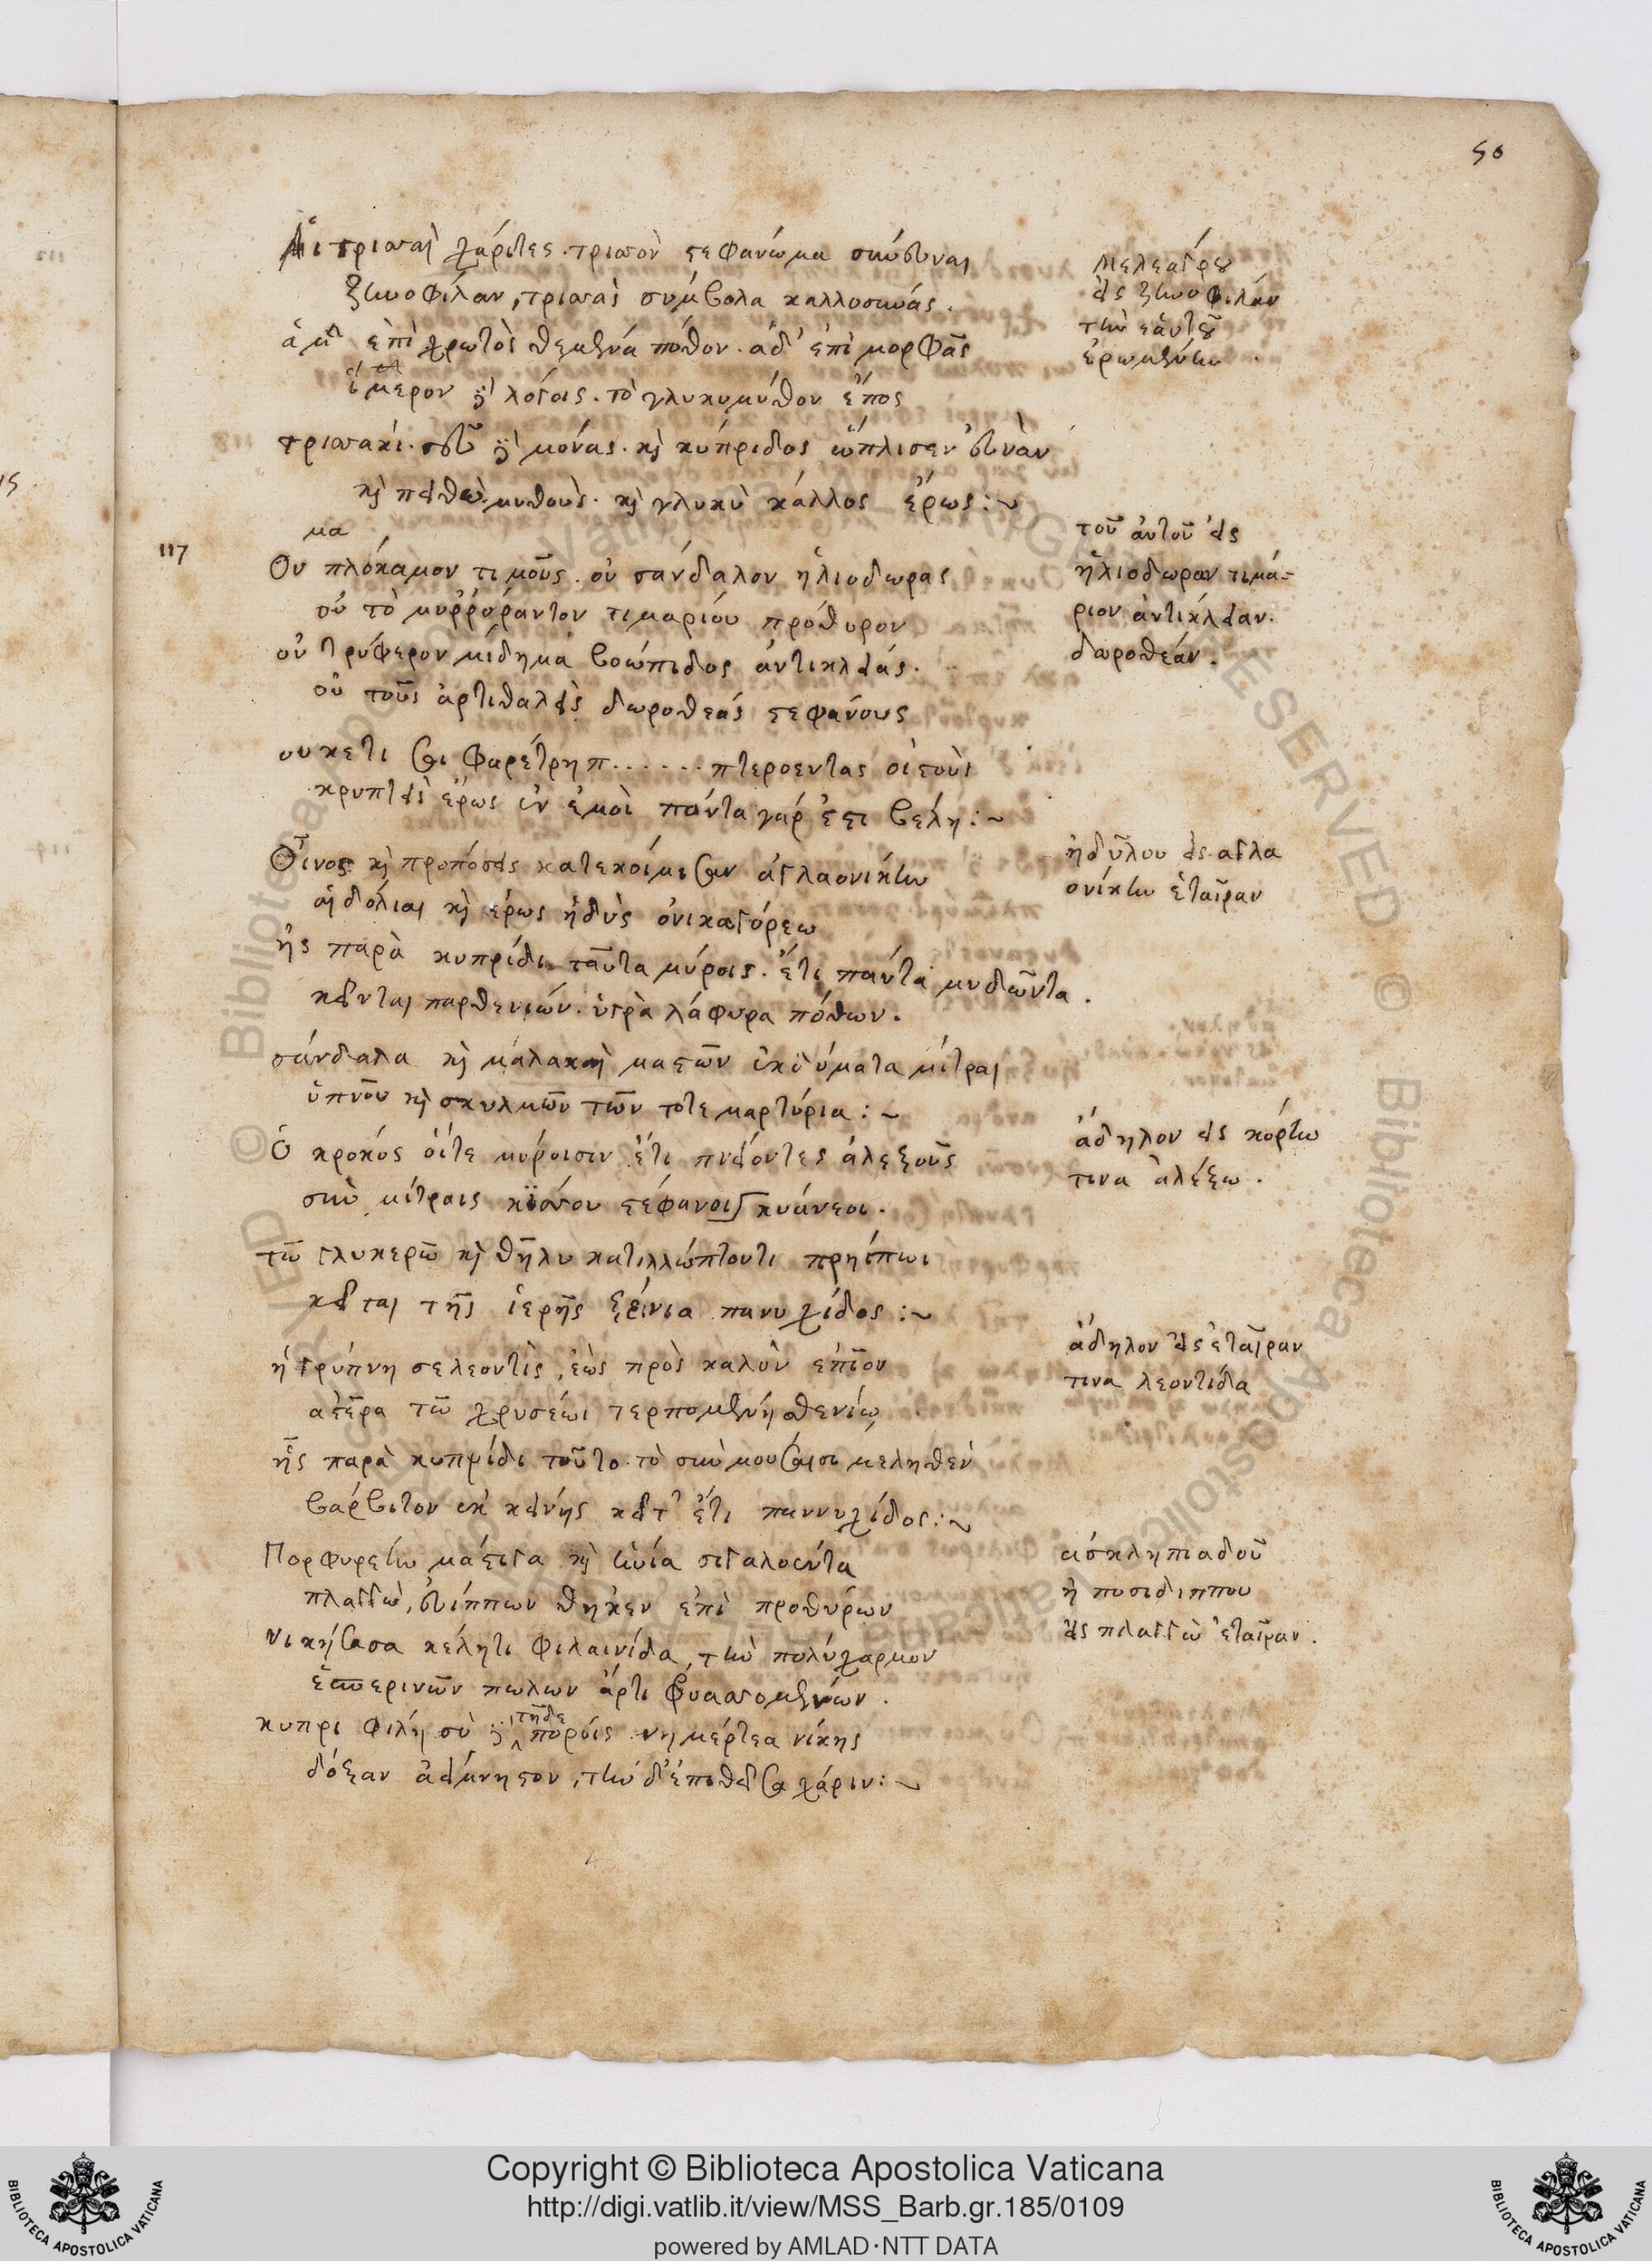 50
Αἱ τρισσαὶ χάριτες. τρισσὸν στεφάνωμα σύνευναι
ζηνοφίλαν, τρισσᾶς σύμβολα καλλοσύνας.
ἁ μὲν ἐπὶ χρωτὸς θεμένα πόθον. ἁδ' ἐπὶ μορφᾶς
ἵμερον ἁ δὲ λόγοις. τὸ γλυκύμυθον ἔπος
κὴ πειθὼ μύθους. κὴ γλυκὺ κάλλος ἔρως :~
Μελεάγρου
εἰς ζηνοφιλάν
τὴν ἑαυτοῦ
ἐρωμένην
117
μα
Ου πλόκαμον τιμοῦς. οὐ σάνδαλον ἡλιοδωρας
οὐ τὸ μυρρόραντον τιμαρίου πρόθυρον
οὐ τρύφερον μίδημα βοώπιδος ἀντικλείας.
οὐ τοῦς ἀρτιθαλεῖς δωροθεάς στεφάνους
ουκετι σοι φαρέτρη π......πτεροεντας οἰστοὺς
κρυπτεὶ ἔρως ἐν ἐμοὶ πάντα γάρ ἐστι βέλη :~
τοῦ ἀυτοῦ εἰς
ἡλιοδωραν τιμά-
ριον ἀντικλείαν.
δωροθεάν.
Οἶνος κὴ προπόσεις κατεκοίμισαν ἀγλαονίκην
αἱ δόλιαι κὴ ἔρως ἡδὺς ὀνικαγόρεω
ἧς παρὰ κυπρίδι ταῦτα μύροις. ἔτι πάντα μυδῶντα.
κεῖνται παρθενιών. ὑγρὰ λάφυρα πόθων.
σάνδαλα κὴ μαλακαὶ μαστῶν ἐκδύματα μίτραι
ὑπνου κὴ σκυλμῶν τῶν τοτε μαρτύρια :~
ἡδύλου εἰς αγλα
ονίκην ἑταῖραν
Ὁ κροκός οἵτε μύροισιν ἔτι πνείοντες ἀλεξοῦς
σὺν μίτραις κισσοῦ στέφανοι κυάνεοι.
τῶ γλυκερῶ κὴ θῆλυ κατιλλώπτοντι πρηίπωι
κεῖται τῆς ἱερῆς ξείνια πανυχίδος :~
ἄδηλον εἰς κόρην
τινα ἀλέξω.
ἠγρύπνη σελεοντὶς, ἑὼς πρὸς καλὸν ἑῶον
αστέρα τῶ χρυσέωι τερπομένη σθενίω
ἧς παρὰ κυπρίδι τοῦτο τὸ σὺν μούσαισι μεληθέν
βάρβιτον ἐκ κείνης κεῖτ' ἔτι παννυχίδος :~
ἄδηλον εἰς ἑταῖραν
τινα λεοντίδα
Πορφυρέην μάστιγα κὴ ἡνία σιγαλοέντα
πλαγγὼ, ευίππων θῆκεν ἐπὶ προθύρων
νικήσασα κέλητι φιλαινίδα, τὴν πολύχαρμον
ἑσπερινῶν πώλων ἄρτι φυασσομένων.
κυπρι φίλη σὺ δὲ τῆδε πόροις νημέρτεα νίκης
δόξαν ἀείμνηστον, τήν δ' ἐπιθεῖσα χάριν :~
ἀσκληπιαδοῦ
ἢ ποσιδιππου
εἰς πλαγγὼ ἑταῖραν.
Copyright © Biblioteca Apostolica Vaticana
http://digi.vatlib.it/view/MSS_Barb.gr.185/0109
powered by AMLAD·NTT DATA
BIBLIOTECA APOSTOLICA VATICANA
BIBLIOTECA APOSTOLICA VATICANA